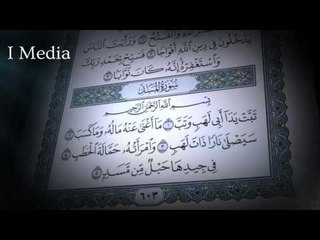 I Media
يَدْخُلُونَ فِي دِينِ اللَّهِ أَفْوَاجًا ۝ فَسَبِّحْ بِحَمْدِ رَبِّكَ
وَاسْتَغْفِرْهُ إِنَّهُ كَانَ تَوَّابًا ۝
سُورَةُ الْمَسَدِ
بِسْمِ اللَّهِ الرَّحْمَٰنِ الرَّحِيمِ
تَبَّتْ يَدَا أَبِي لَهَبٍ وَتَبَّ ۝ مَا أَغْنَىٰ عَنْهُ مَالُهُ وَمَا كَسَبَ ۝
سَيَصْلَىٰ نَارًا ذَاتَ لَهَبٍ ۝ وَامْرَأَتُهُ حَمَّالَةَ الْحَطَبِ ۝
فِي جِيدِهَا حَبْلٌ مِّن مَّسَدٍ ۝
٦٠٣